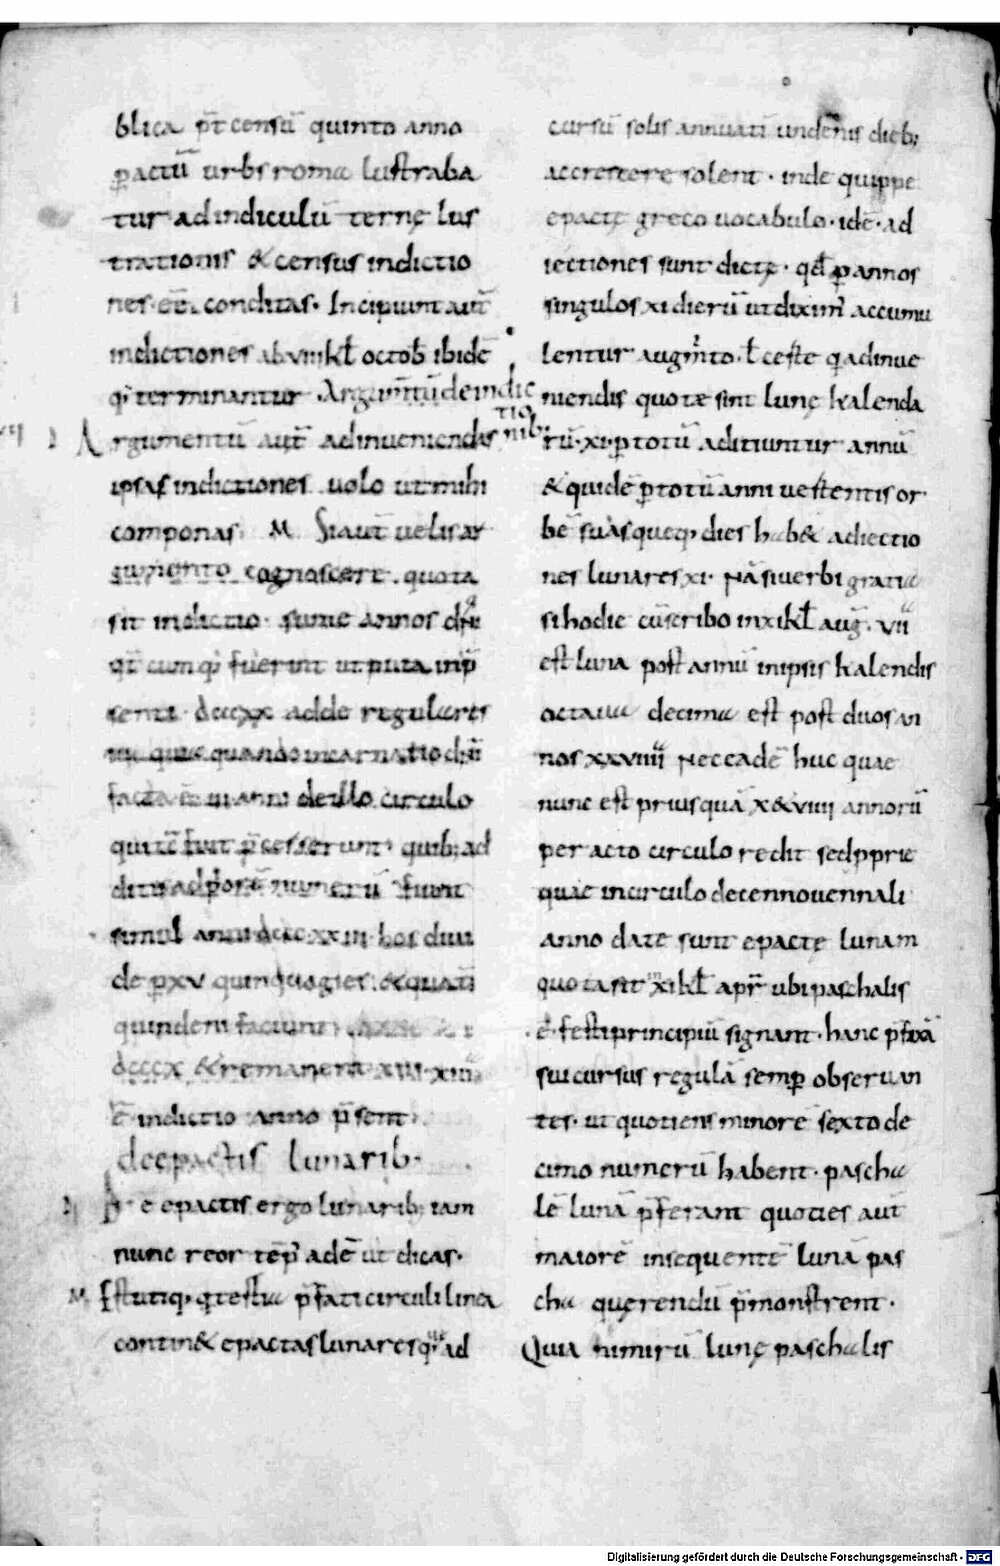 blica p̄t censū quinto anno
p̱ actū urbs roma lustraba
tur ad indiculū ternę lus
trationis & census indictio
nes eē conditas. Incipiunt aut̄
indictiones ab viii kl̄ octob̄ ibidē
q; terminantur. Argum̄tū de indic
tio
nib;
Argumentū aut̄ ad inueniendas
ipsas indictiones uolo ut mihi
componas. M Si aut̄ uelis ar
gumento cognoscere quota
sit indictio. sume annos dn̄i
qt̄ cumq; fuerint ut puta in p̄
senti dcccxx adde regulares
iii quia quando incarnatio dn̄i
facta ē iii anni de illo circulo
qui tc̄ fuit p̄cesserunt quib; ad
ditis
simul anni dcccxxiii hos diui
de p̱ xv quinquagies & quat̄
quindeni faciunt
dcccx & remanent xiii. xiii
ē indictio anno p̄senti.
de epactis lunarib.
De epactis ergo lunarib; iam
nunc reor tēp̄ adē ut dicas.
M Estutiq; p̄fati circuli linea
contin& epactas lunares q ad
cursū solis annuatī undenis dieb;
accrescere solent. inde quippe
epactę greco uocabulo. idē. ad
iectiones sunt dictę. qd̄ p̱ annos
singulos xi dierū ut dixim̄ accumu
lentur augm̄to. l̄ certe q ad inue
niendis quotae sint lunę kalenda
rū. xi. p̱ totū aditiuntur annū
& quidē p̱ totū anni uestentis or
bē suas queq; dies hab& adiectio
nes lunares xi. Nā si uerbi gratia
si hodie cū scribo in xi kl̄ aug. vii
est luna post annū in ipsis kalendis
octaua decima est post duos an
nos xxviiii Nec cadē huc quae
nunc est priusquā x & viiii annorū
peracto circulo redit sed pprie
quae in circulo decennouennali
anno date sunt epactę lunam
quota sit in xi kl̄ apr̄ ubi paschalis
ē festi principiū signant. hanc p̄fixā
sui cursus regulā semp̱ obseruan
tes. ut quotiens minorē sexto de
cimo numerū habent. pascha
lē lunā p̄ferant quoties aut̄
maiorē insequentē lunā pas
cha querendū p̄monstrent.
Quia nimirū lunę paschalis
Digitalisierung gefördert durch die Deutsche Forschungsgemeinschaft - DFG